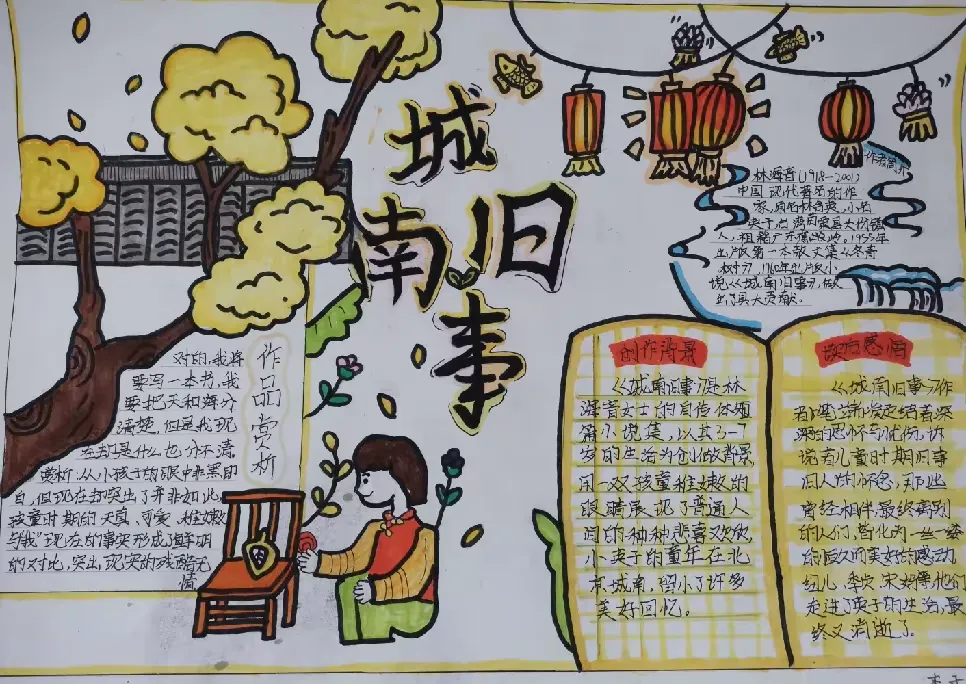 城
南
旧
事
作者简介
林海音(1918-2001)
中国现代著名创作
家,原名林含英,小名
版第一本散文集《冬青
树》,1960年出版小
说《城南旧事》,做
出了巨大贡献.
作品赏析
对的,我将
要写一本书,我
要把天和海分
清楚,但是我现
在却是什么也分不清
赏析:从小孩子的眼中非黑即
白,但现在却突出了并非如此,
孩童时期的天真、可爱、稚嫩
与"我"现在的事实形成鲜明
的对比,突出,现实的残酷无
情
创作背景
《城南旧事》是林
海音女士的自传体短
篇小说集,以其7-1
岁的生活为创做背景
用一双孩童稚嫩的
眼睛展现了普通人
间的种种悲喜欢欣
小英子的童年在北
京城南,留下了许多
美好回忆。
读后感悟
《城南旧事》作
者
深的思怀与忧伤,诉
说着儿童时期旧事
旧人的怀念,那些
曾经相伴,最终离别
的人们,皆化为一丝一缕
的美好的感动
妞儿、季叔、宋妈等,他们
走进了英子的生活,最
终又消逝了。